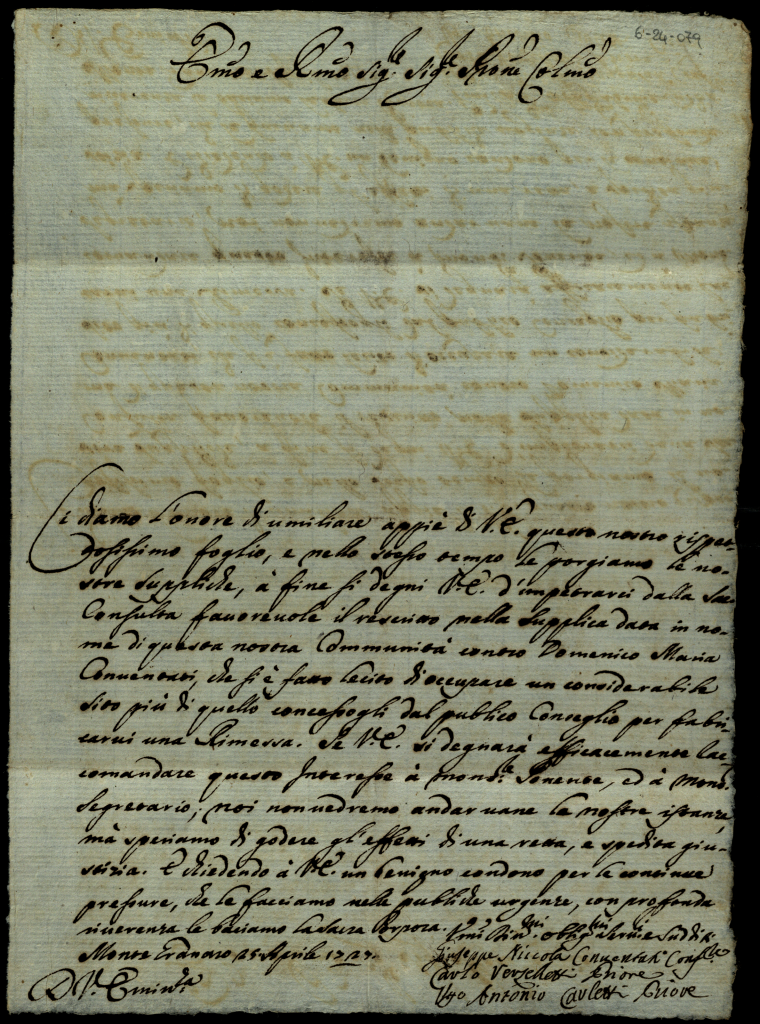 6-24-079
Emo e Rmo Sig.re Sig.re Prone Colmo
Ci diamo l'onore di umiliare appiè di V.E. questo nostro rispet-
tosissimo foglio, e nello stesso tempo le porgiamo le no-
stre suppliche, à fine si degni V.E. d'impetrarci dalla Sac.
Consulta favorevole il rescritto nella supplica data in no-
me di questa nostra Communità contro Domenico Maria
Conventati, che si è fatto lecito di occupare un considerabile
sito più di quello concessogli dal publico Conseglio per fabri-
carvi una Rimessa. Se V.E. si degnarà efficacemente rac-
comandare questo Interesse à mons.re Ponente, ed à mons.
Segretario; noi non vedremo andar vane le nostre istanze,
mà speriamo di godere gl'effetti di una retta, e spedita giu-
stizia. E chiedendo à V.E. un benigno condono per le continue
pressure, che le facciamo nelle publiche urgenze, con profonda
riverenza le baciamo la Sacra Porpora.
Monte Granaro 25 Aprile 1727.
D. V. Emin.za
Umi Dmi. oblig.mi Servi e Sudditi
Giuseppe Niccola Conventati Cons.re
Carlo Verschetti Priore
Antonio Carletti Priore